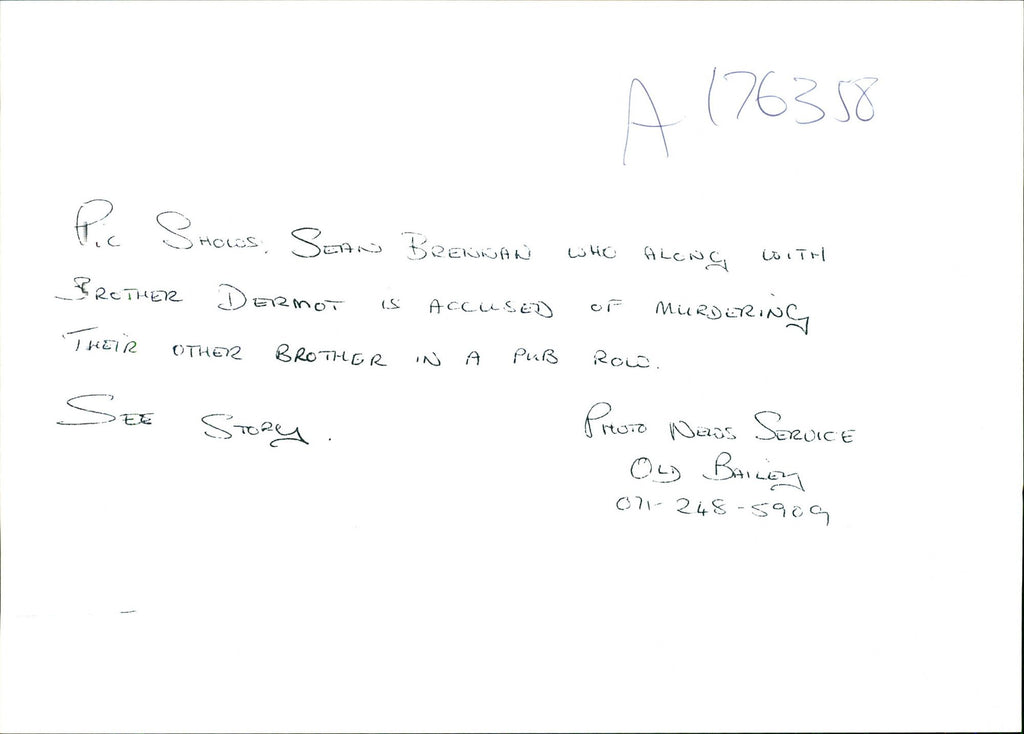 A 176358
Pic Shows. Sean Brennan who along with
Brother Dermot is accused of murdering
Their other brother in a pub row.
See Story.
Photo News Service
Old Bailey
071-248-5909